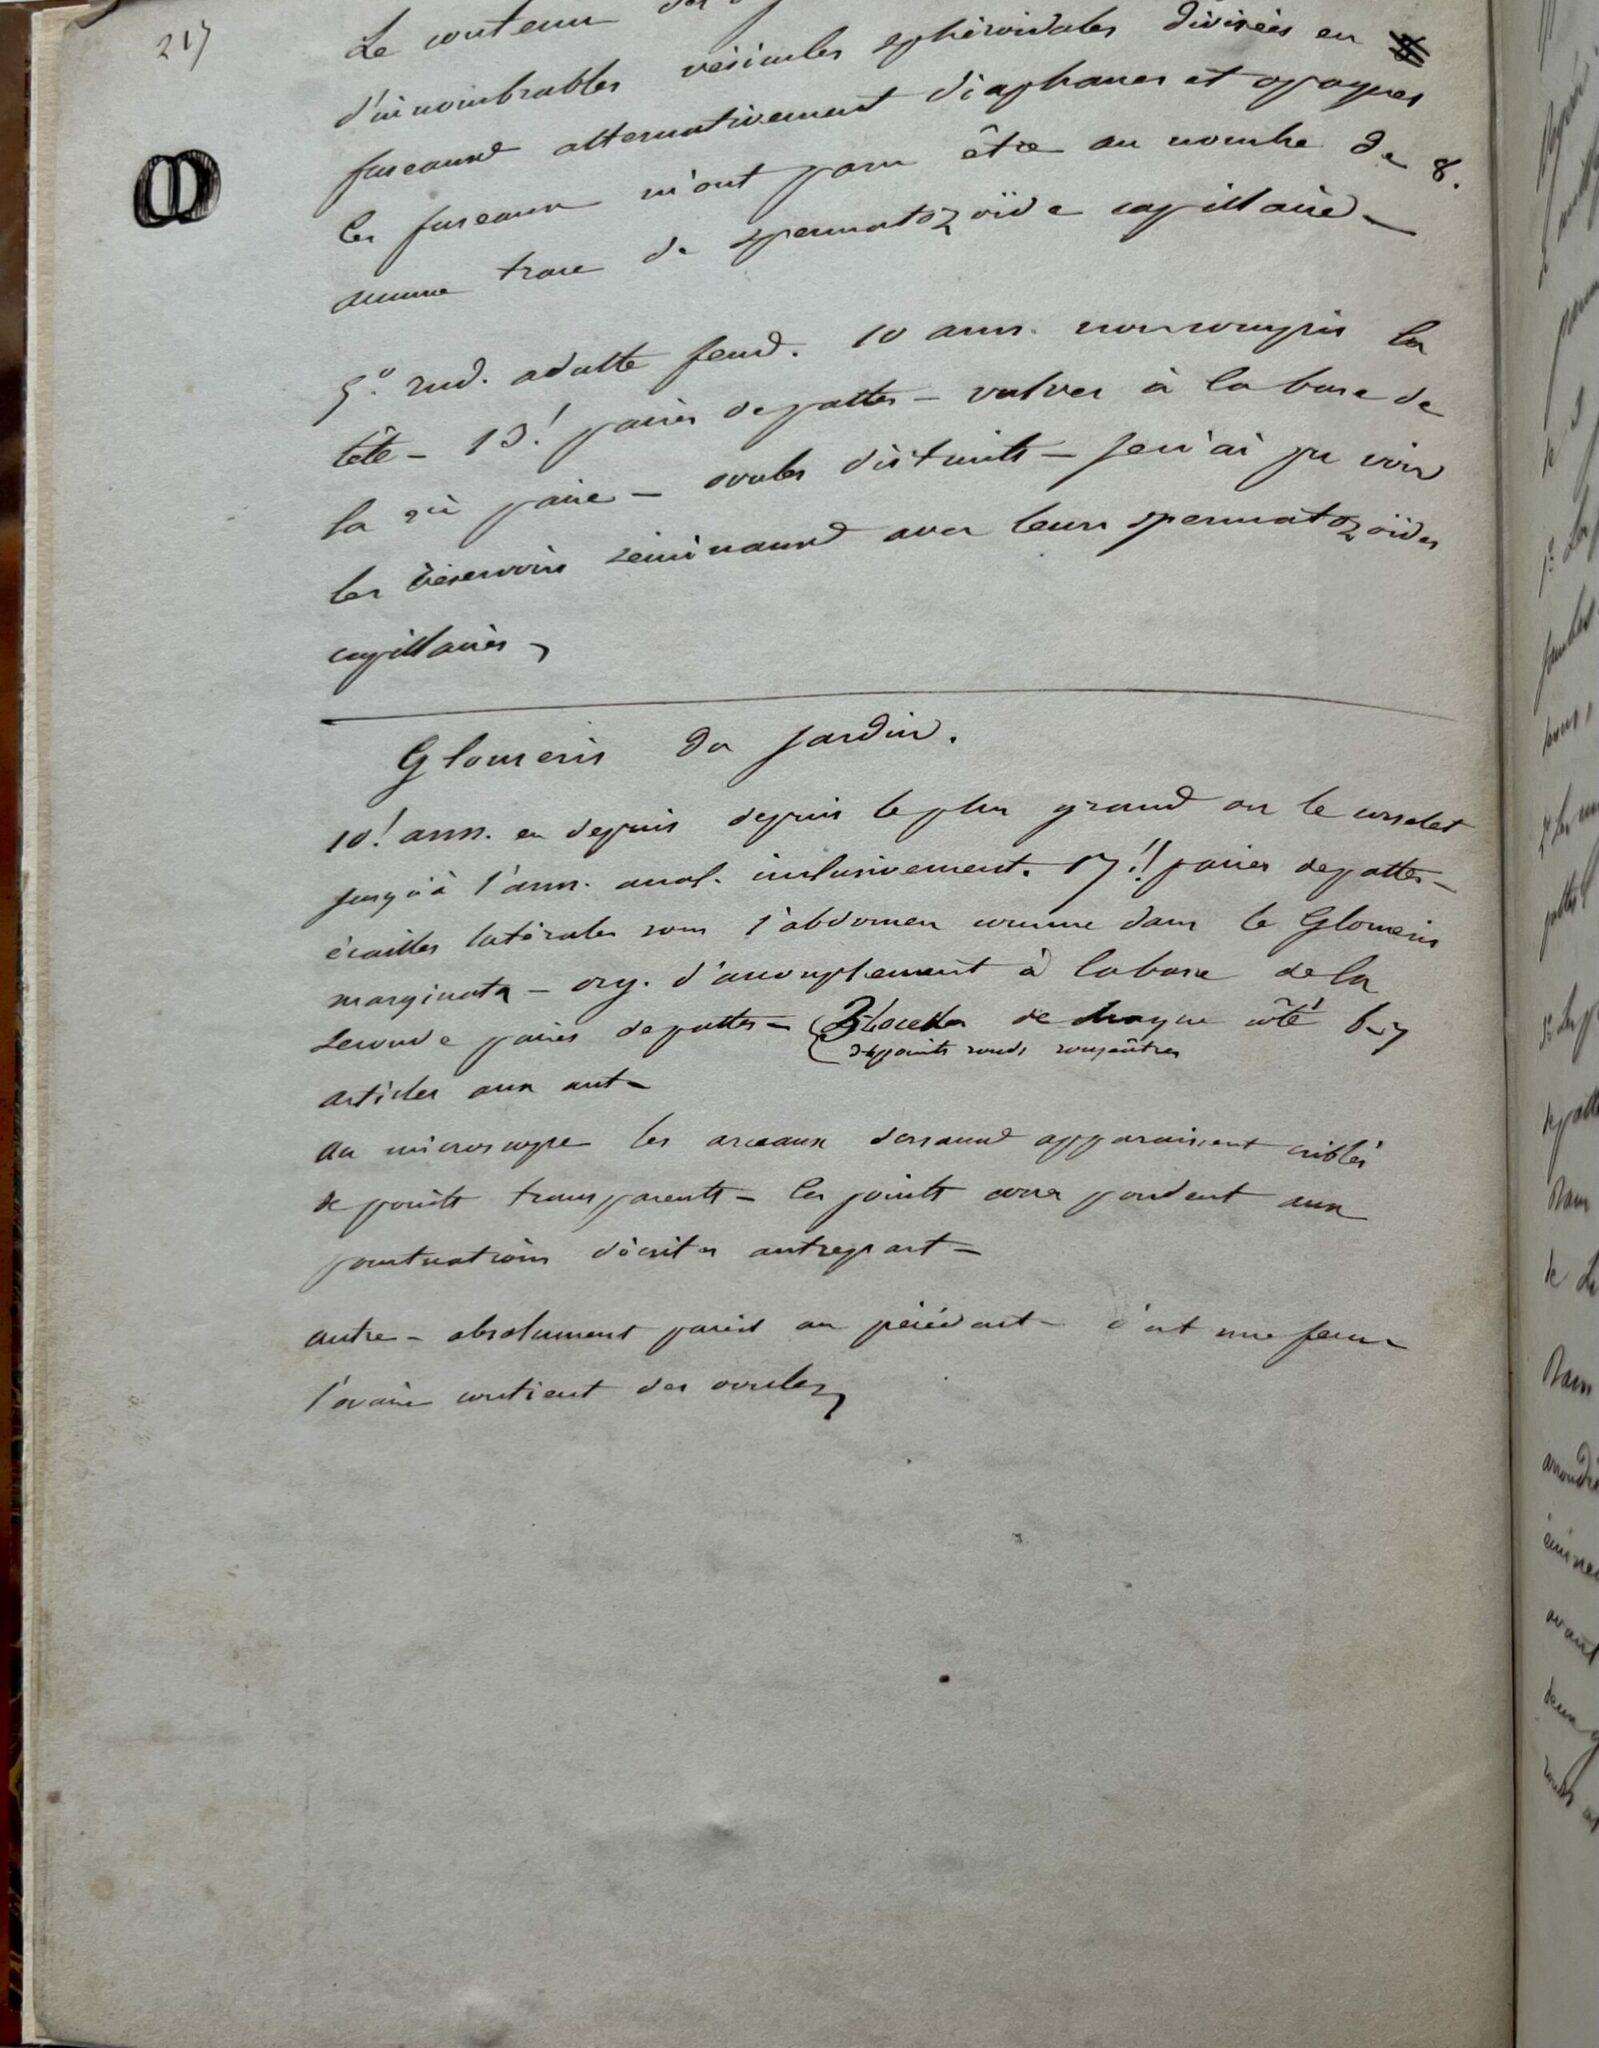 217
Le contenu
d'innombrables vésicules sphéroidales divisées en
fuseaux alternativement diaphanes et opaques
les fuseaux m'ont paru être au nombre de 8.
aucune trace de spermatozoïde capillaire —
5° ind. adulte fem. 10 ann. non compris la
tête — 13! paires de pattes — vulves à la base de
la 2è paire — ovules distincts — je n'ai pu voir
les réservoirs séminaux avec leurs spermatozoïdes
capillaires,
Glomeris du jardin.
10! ann. en depuis depuis le plus grand ou le corselet
jusqu'à l'ann. anal. inclusivement. 17!! paires de pattes —
écailles latérales sous l'abdomen comme dans le Glomeris
marginata — org. d'accouplement à la base de la
seconde paires de pattes — de chaque côté 6-7
points ronds rougeâtres
articles aux ant —
au microscope les arceaux dorsaux apparaissent criblés
de points transparents — les points correspondent aux
ponctuations décrites autrepart —
autre — absolument pareil au précédent — c'est une fem
l'ovaire contient des ovules,